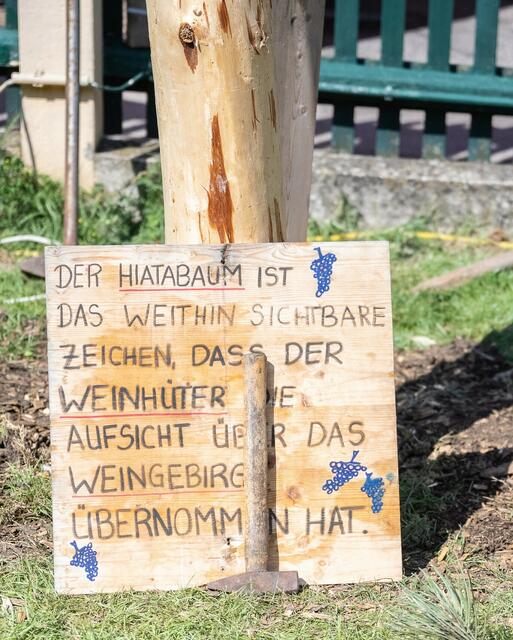 DER HIATABAUM IST
DAS WEITHIN SICHTBARE
ZEICHEN, DASS DER
WEINHÜTER DIE
AUFSICHT ÜBER DAS
WEINGEBIRGE
ÜBERNOMMEN HAT.